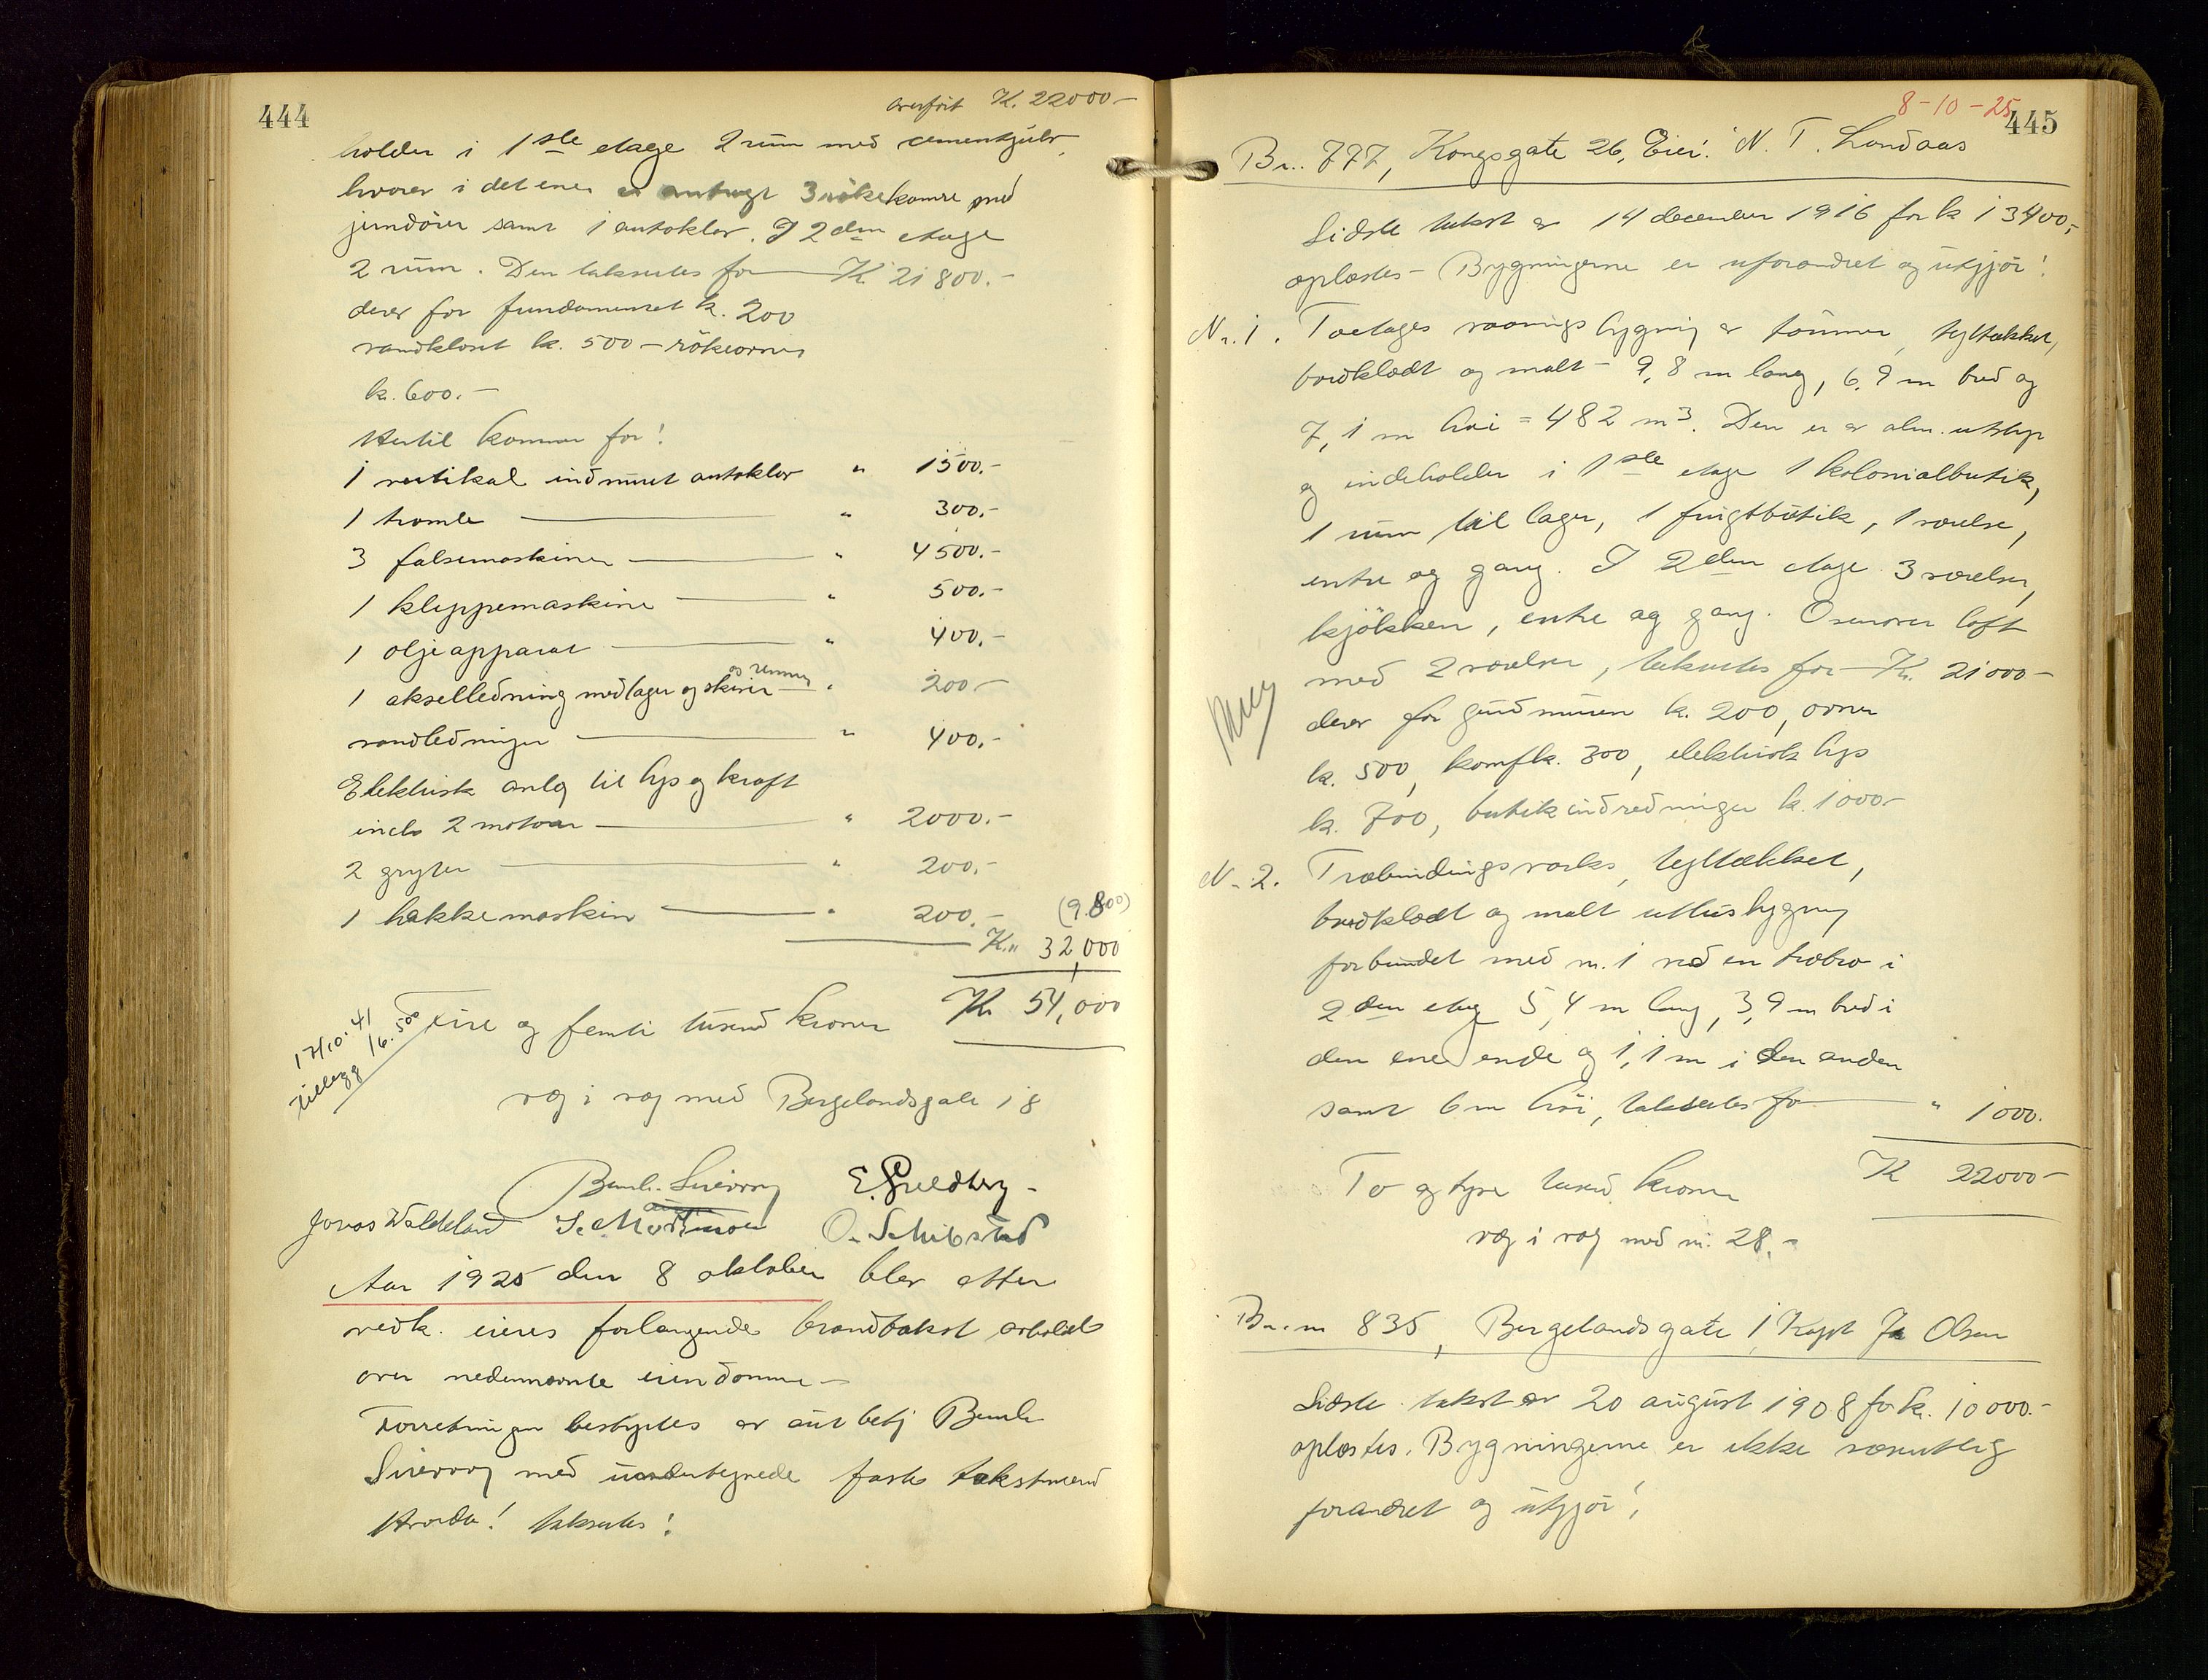 444
overført K. 22000-
holder i 1ste etage 2 rum med cementgulv,
hvorav i det ene er anbragt 3 røkekamre med
jerndører samt 1 autoklav. I 2den etage
2 rum. Den takseres for K. 21800.-
derav for fundamentet k. 200
vandkloset k. 500 - røkeovner
k. 600.-
Hertil kommer for:
1 vertikal indmuret autoklav " 1500.-
1 tromle " 300.-
3 falsemaskiner " 4500.-
1 klippemaskine " 500.-
1 oljeapparat " 400.-
og remmer
1 akselledning med lager og skiver " 200-
vandledninger " 400.-
Elektrisk anlæg til lys og kraft
incl. 2 motorer " 2000.-
2 gryter " 200.-
1 hakkemaskin " 200.-
(9.800)
K." 32,000
Fire og femti tusend kroner K 54,000
17/10.41
Tillegg 16.500
væg i væg med Bergelandsgate 18
Bernh. Sirevaag E. Guldberg-
Jonas Waldeland O. Schibsted
Aar 1925 den 8 oktober blev efter
vedk. eieres forlangende brandtakst avholdt
over nedennævnte eiendomme-
Forretningen bestyrtes av aut betj Bernh
Sirevaag med undertegnede faste takstmænd
Hvorda! takseres:
8-10-25
445
Br.. 777, Kongsgate 26, Eier: N. T. Londaas
Sidste takst av 14 december 1916 for k 13400,-
oplæstes - Bygningerne er uforandret og utgjør:
Nr. 1. Toetages vaaningsbygning av tømmer, tegltækket,
bordklædt og malt - 9,8 m lang, 6,9 m bred og
7,1 m høi = 482 m3. Den er av alm. utstyr
og indeholder i 1ste etage 1 kolonialbutik,
1 rum til lager, 1 frugtbutik, 1 værelse,
entre og gang. I 2den etage 3 værelser,
kjøkken, entre og gang. Ovenover loft
med 2 værelser, takseres for K. 21000-
derav for grundmuren k. 200, ovner
k. 500, komf k. 300, elektrisk lys
k. 700, butikindredninger k. 1000-
N. 2. Træbindingsværks, tegltækket,
bordklædt og malt uthusbygning
forbundet med nr. 1 ved en træbro i
2den etag 5,4 m lang, 3,9 m bred i
den ene ende og 1,1 m i den anden
samt 6 m høi, takseres for " 1000.
To og tyve tusend kroner K 22000-
væg i væg med nr. 28.-
Br. nr 835, Bergelandsgate 1, Kapt Olsen
Sidste takst av 20 august 1908 for k. 10000.-
oplæstes. Bygningerne er ikke væsentlig
forandret og utgjør: